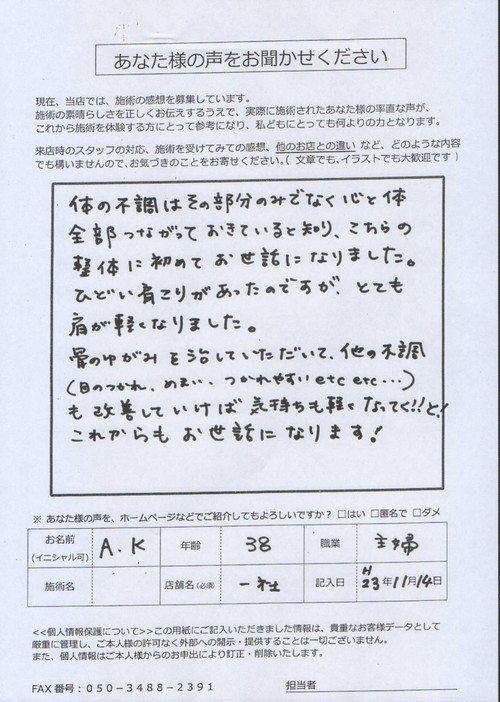 あなた様の声をお聞かせください
現在、当店では、施術の感想を募集しています。
施術の素晴らしさを正しくお伝えするうえで、実際に施術されたあなた様の率直な声が、
これから施術を体験する方にとって参考になり、私どもにとっても何よりの力となります。
来店時のスタッフの対応、施術を受けてみての感想、他のお店との違い など、どのような内容
でも構いませんので、お気づきのことをお寄せください。( 文章でも、イラストでも大歓迎です )
体の不調はその部分のみでなく心と体
全部つながっておきていると知り、こちらの
整体に初めてお世話になりました。
ひどい肩こりがあったのですが、とても
肩が軽くなりました。
骨のゆがみを治していただいて、他の不調
(目のつかれ、めまい、つかれやすい etc etc …)
も改善していけば気持ちも軽くなってく!!と!
これからもお世話になります!
※ あなた様の声を、ホームページなどでご紹介してもよろしいですか？ □はい □匿名で □ダメ
お名前 (イニシャル可) A.K 年齢 38 職業 主婦
施術名 店舗名(必須) 一社 記入日 H23年11月14日
<<個人情報保護について>>この用紙にご記入いただきました情報は、貴重なお客様データとして
厳重に管理し、ご本人様の許可なく外部への開示・提供することは一切ございません。
また、個人情報はご本人様からのお申出により訂正・削除いたします。
FAX 番号：050－3488－2391 担当者